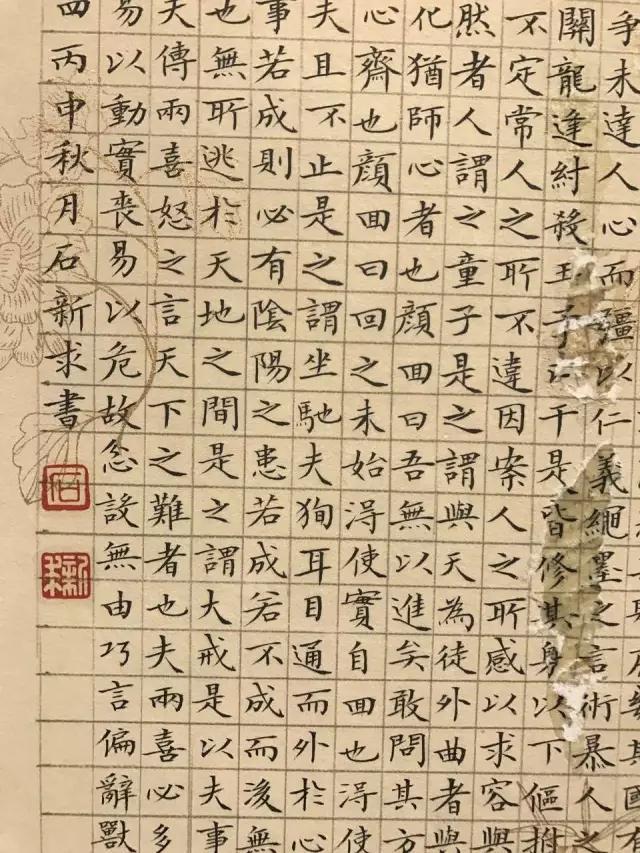 爭未達人心而彊以仁義繩墨之言術暴人之
關龍逢紂殺王子比干是皆修其身以下傴拊
不定常人之所不違因案人之所感以求容與
然者人謂之童子是之謂與天為徒外曲者與
化猶師心者也顏回曰吾無以進矣敢問其方
心齋也顏回曰回之未始得使實自回也得使
夫且不止是之謂坐馳夫狥耳目通而外於心
事若成則必有陰陽之患若成若不成而後無
也無所逃於天地之間是之謂大戒是以夫事
天傳兩喜怒之言天下之難者也夫兩喜必多
易以動實喪易以危故忿設無由巧言偏辭獸
四丙申秋月石新求書
石
新求